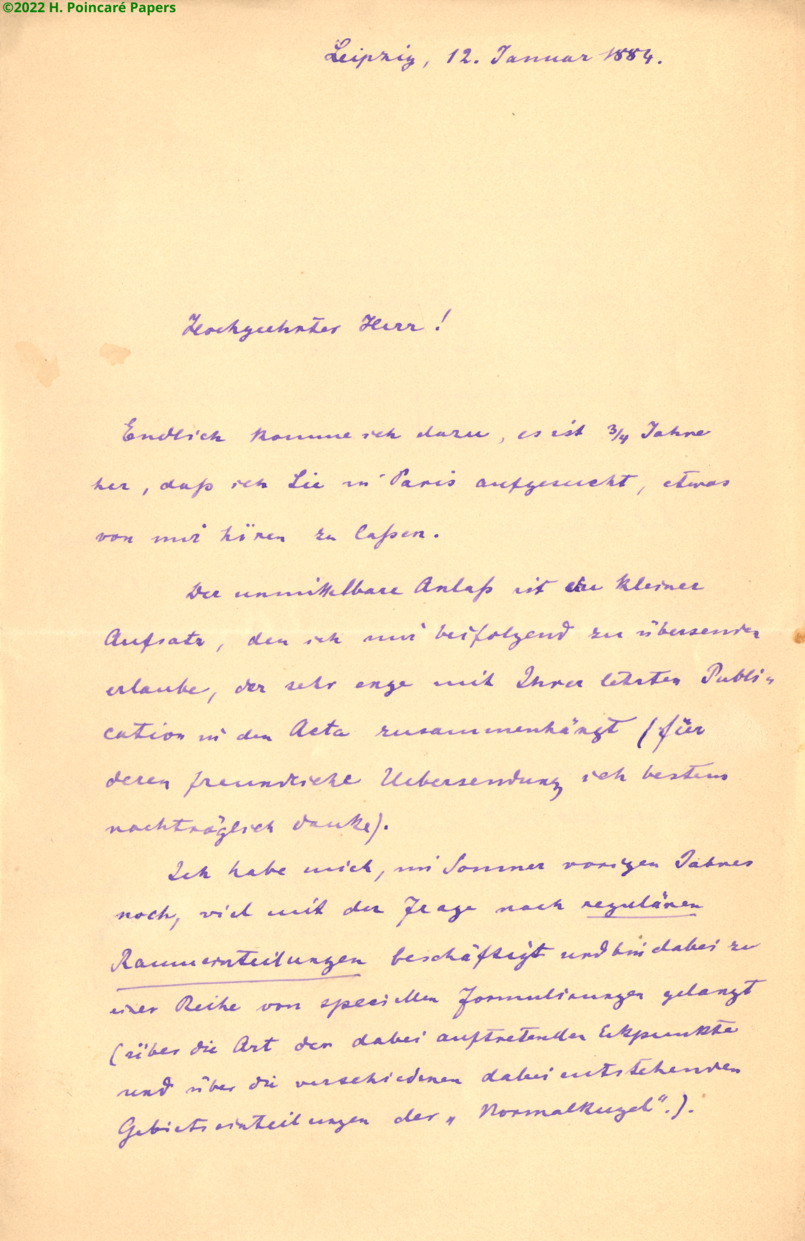 ©2022 H. Poincaré Papers
Leipzig, 12. Januar 1884.
Hochgeehrter Herr!
Endlich komme ich dazu, es ist 3/4 Jahre
her, daß ich Sie in Paris aufgesucht, etwas
von mir hören zu laßen.
Die unmittelbare Anlaß ist ein kleiner
Aufsatz, den ich mir beifolgend zu übersenden
erlaube, der sehr enge mit Ihrer letzten Publi-
cation in den Acta zusammenhängt (für
deren freundliche Uebersendung ich bestens
nachträglich danke).
Ich habe mich, im Sommer vorigen Jahres
noch, viel mit der Frage nach regulären
Raumeinteilungen beschäftigt und bin dabei zu
einer Reihe von speciellen Formulirungen gelangt
(über die Art der dabei auftretenden Eckpunkte
und über die verschiedenen dabei entstehenden
Gebietseinteilungen der „Normalkugel“.).